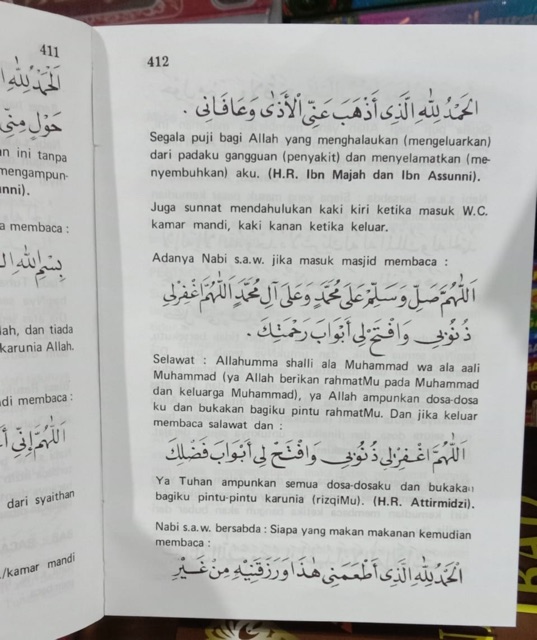 411
الحمد لله ا
حول مني
n ini tanpa
mengampun-
unni).
a membaca :
بسم الله ال
lah, dan tiada
karunia Allah.
di membaca :
اللهم إني أ
dari syaithan
./kamar mandi
412
الحمد لله الذي أذهب عني الأذى وعافاني .
Segala puji bagi Allah yang menghalaukan (mengeluarkan)
dari padaku gangguan (penyakit) dan menyelamatkan (me-
nyembuhkan) aku. (H.R. Ibn Majah dan Ibn Assunni).
Juga sunnat mendahulukan kaki kiri ketika masuk W.C.
kamar mandi, kaki kanan ketika keluar.
Adanya Nabi s.a.w. jika masuk masjid membaca :
اللهم صل وسلم على محمد وعلى آل محمد اللهم اغفر لي
ذنوبي وافتح لي أبواب رحمتك .
Selawat : Allahumma shalli ala Muhammad wa ala aali
Muhammad (ya Allah berikan rahmatMu pada Muhammad
dan keluarga Muhammad), ya Allah ampunkan dosa-dosa
ku dan bukakan bagiku pintu rahmatMu. Dan jika keluar
membaca salawat dan :
اللهم اغفر لي ذنوبي وافتح لي أبواب فضلك
Ya Tuhan ampunkan semua dosa-dosaku dan bukakan
bagiku pintu-pintu karunia (rizqiMu). (H.R. Attirmidzi).
Nabi s.a.w. bersabda : Siapa yang makan makanan kemudian
membaca :
الحمد لله الذي أطعمني هذا ورزقنيه من غير